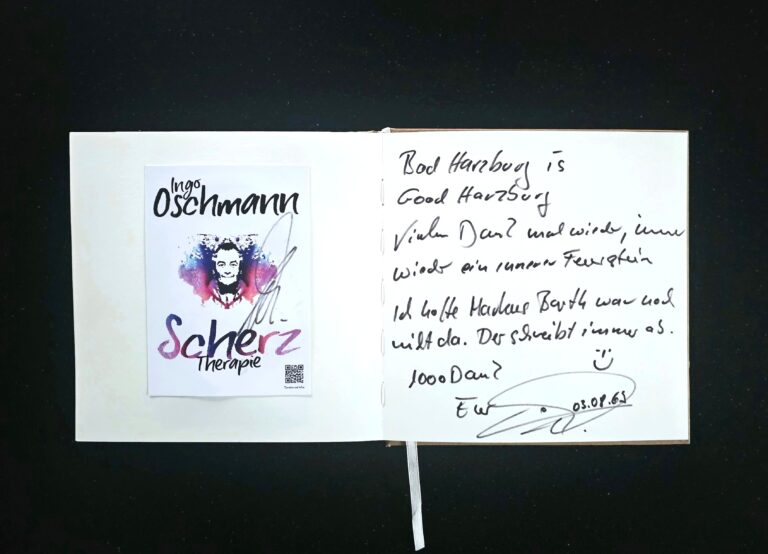 Ingo
Oschmann
Scherz
Therapie
Bad Harzburg is
Good Harzburg
Vielen Dank mal wieder, immer
wieder ein innerer Feuerstein
Ich hoffe Markus Barth war noch
nicht da. Der schreibt immer ab.
1000 Dank
03.08.